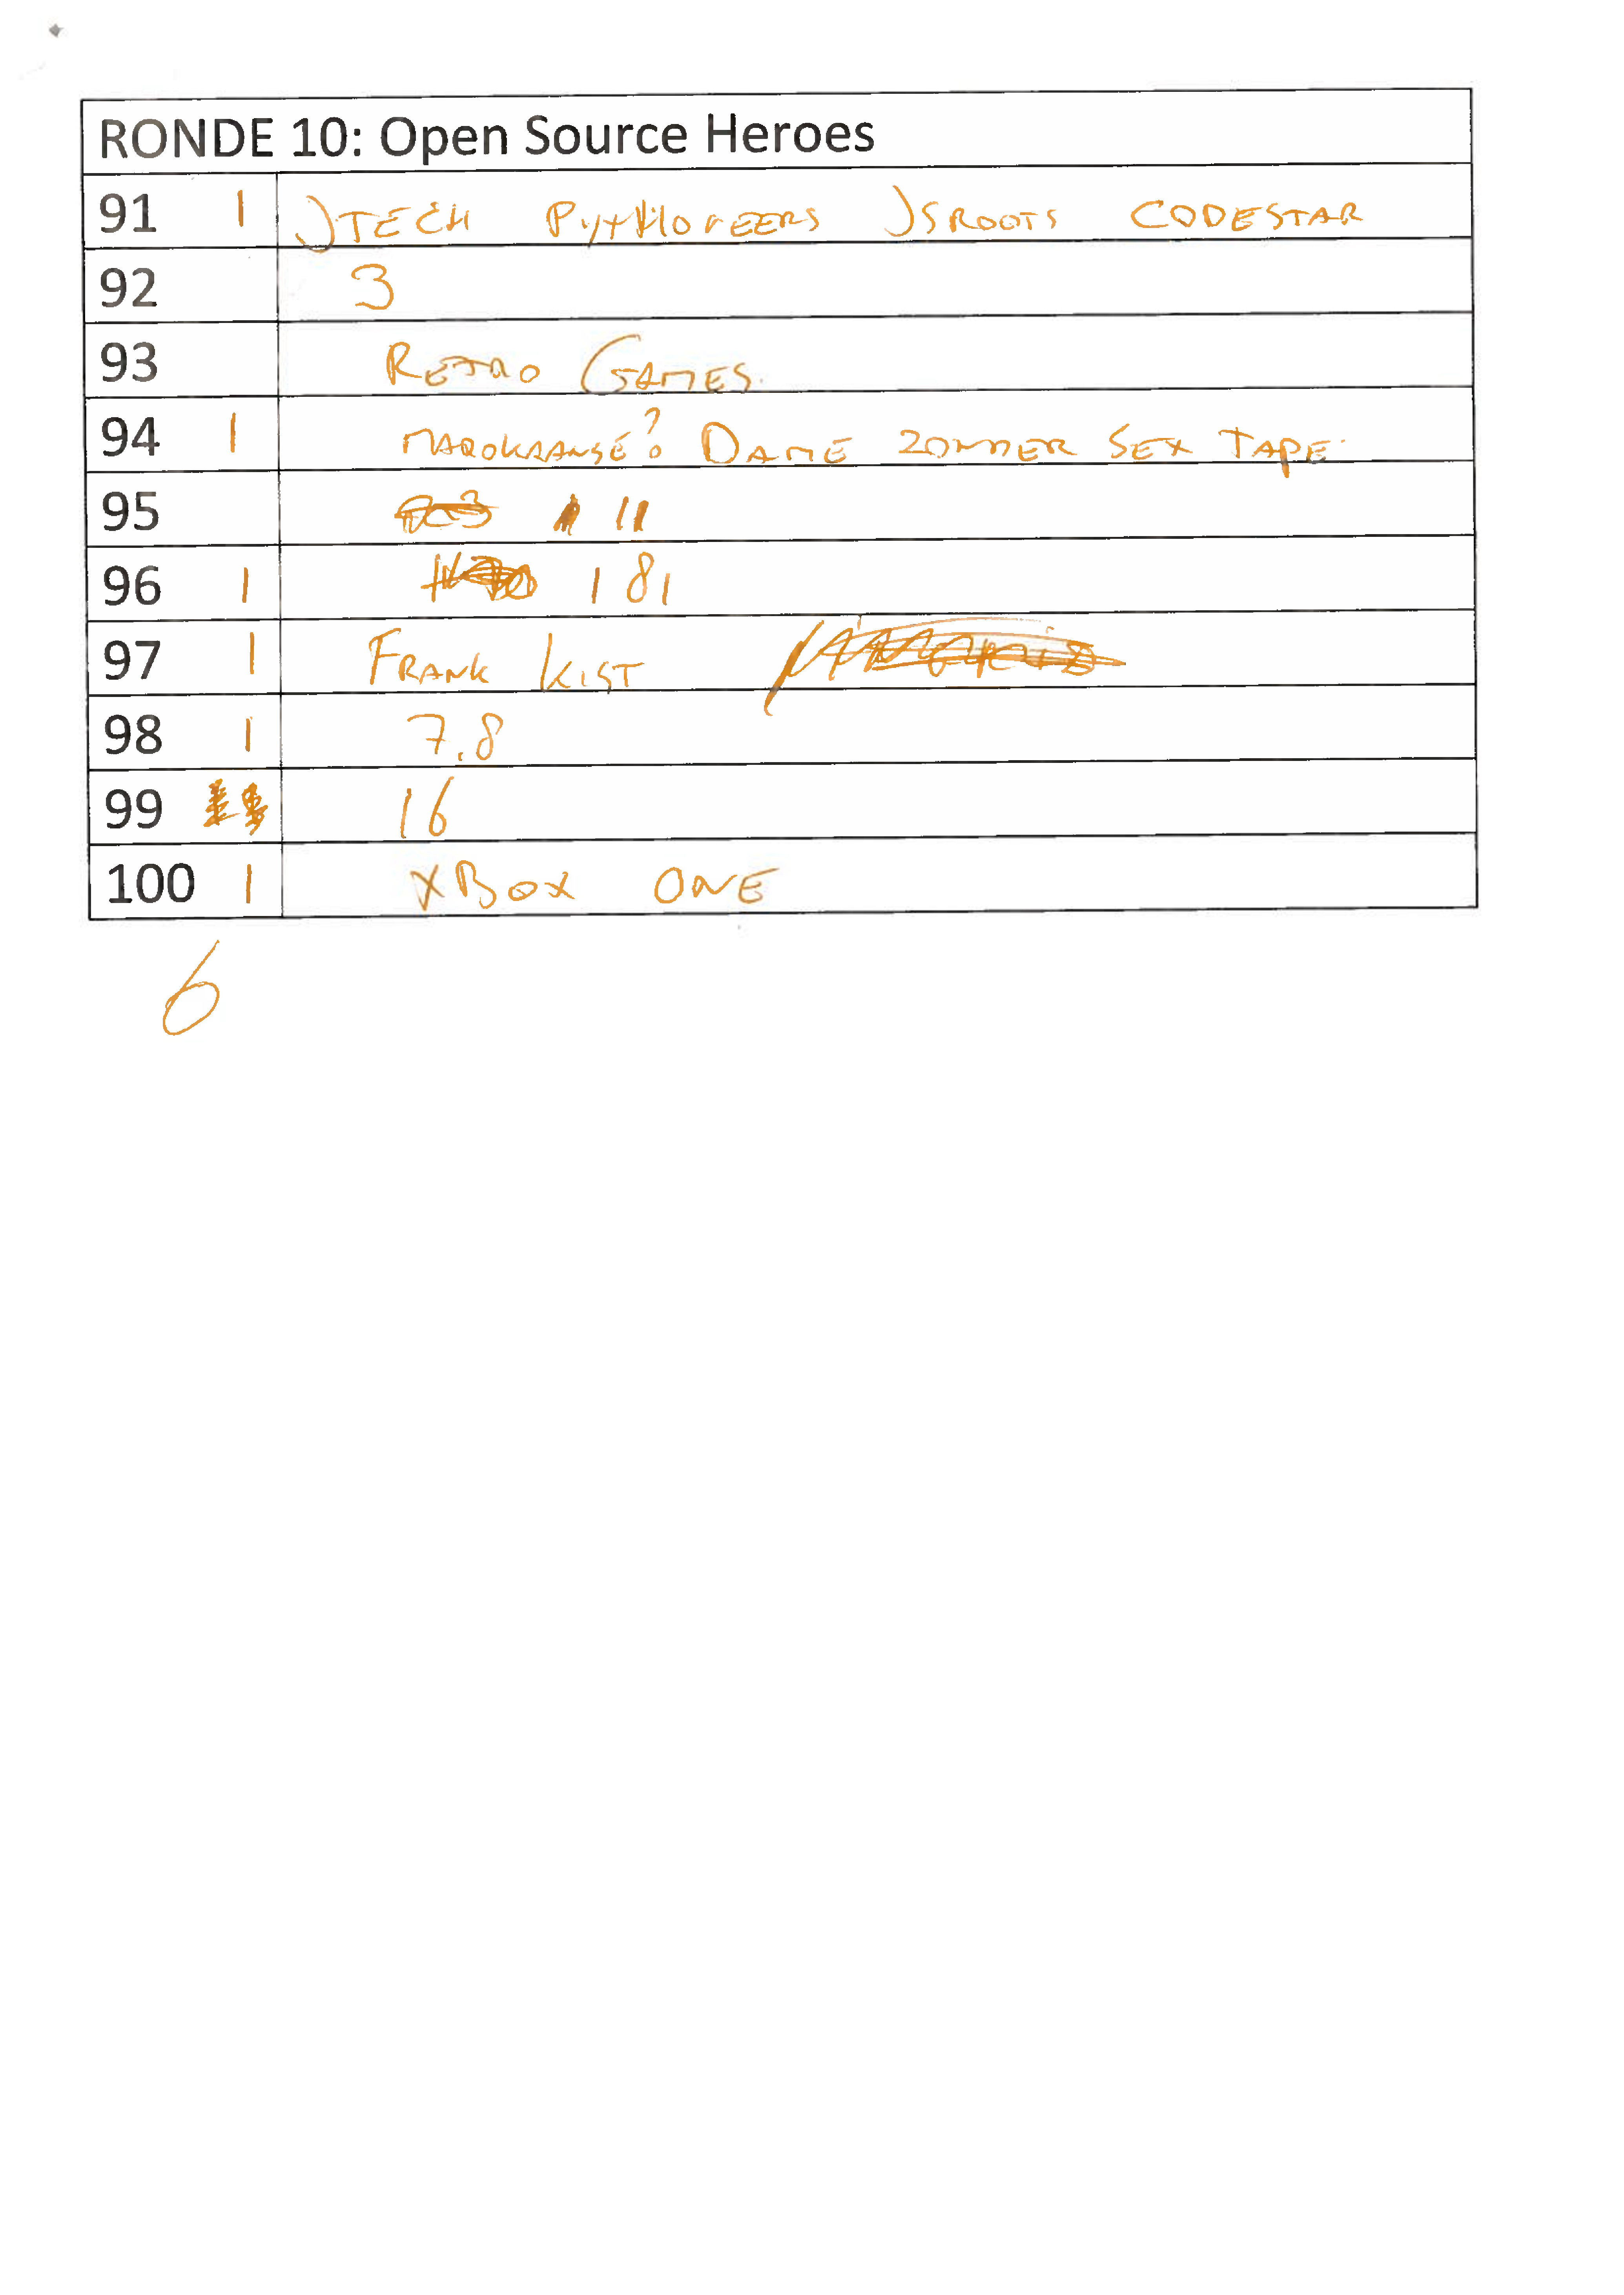 RONDE 10: Open Source Heroes
91 1 JTECH PYTHONEERS JSROOTS CODESTAR
92 3
93 RETRO GAMES.
94 1 MAROKAANSE? DAME ZOMMER SEX TAPE.
95 11
96 1 181
97 1 FRANK KIST
98 1 7.8
99 16
100 1 XBOX ONE
6